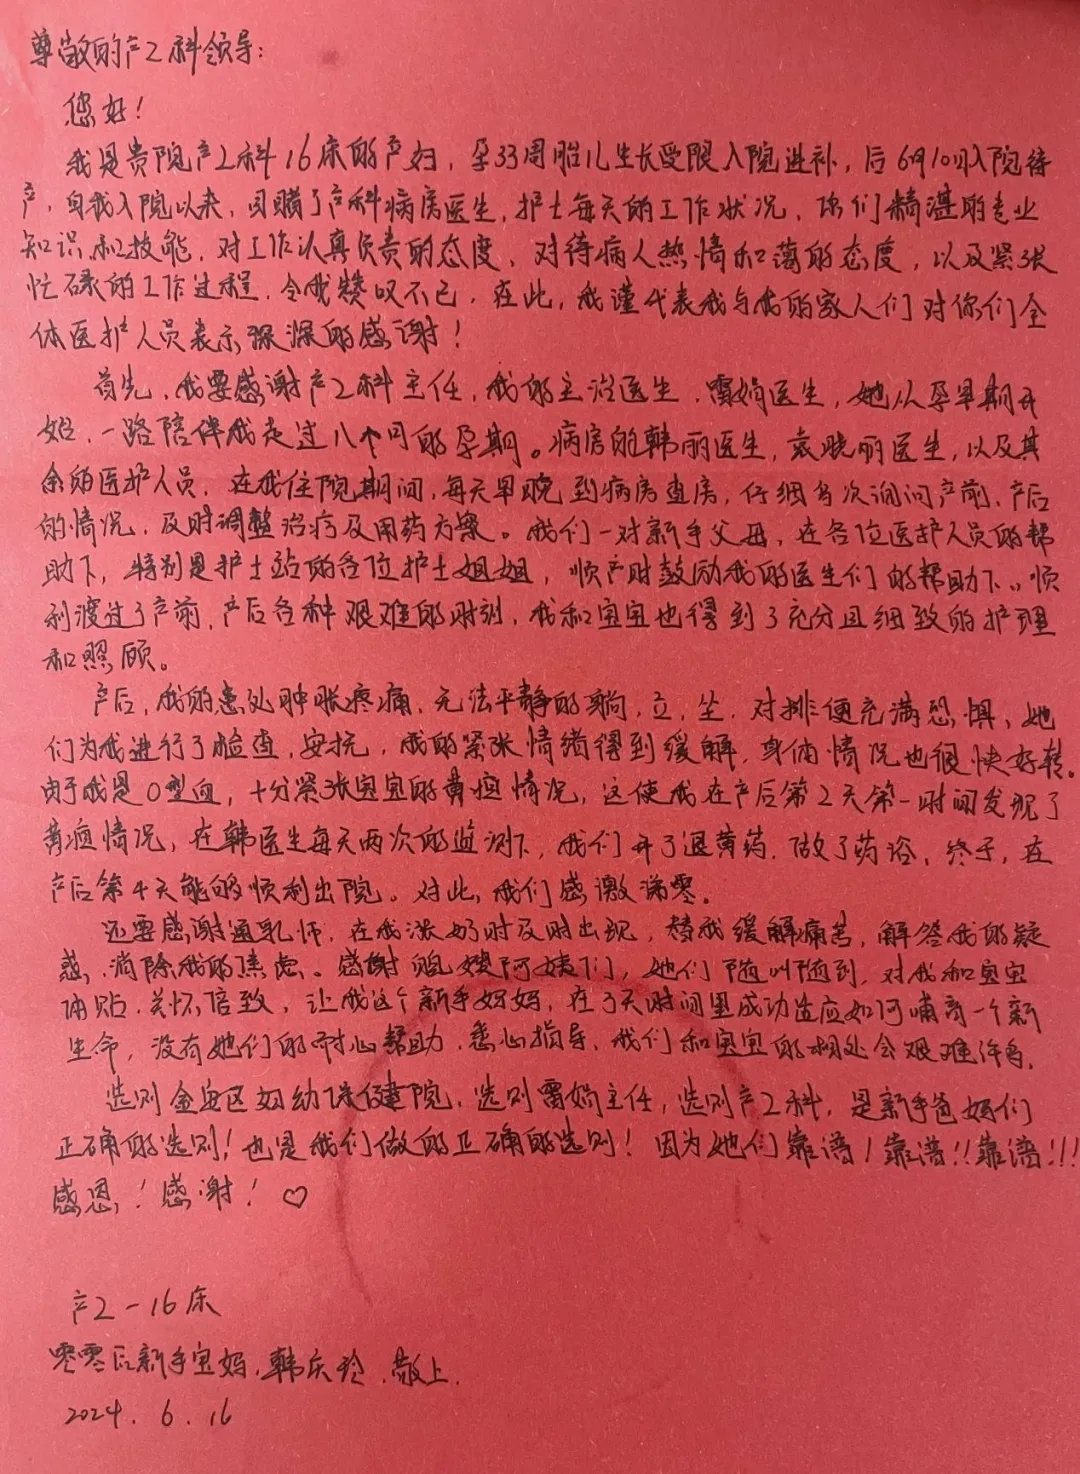 尊敬的产2科领导：
您好！
我是贵院产2科16床的产妇，孕33周胎儿生长受限入院进补，后6月10日入院待
产，自我入院以来，目睹了产科病房医生，护士每天的工作状况，你们精湛的专业
知识和技能，对工作认真负责的态度，对待病人热情和蔼的态度，以及紧张
忙碌的工作过程，令我赞叹不已，在此，我谨代表我与我的家人们对你们全
体医护人员表示深深的感谢！
首先，我要感谢产2科主任，我的主治医生，雷娟医生，她从孕早期开
始，一路陪伴我走过八个月的孕期。病房的韩丽医生，袁晓丽医生，以及其
余的医护人员，在我住院期间，每天早晚到病房查房，仔细多次询问产前、产后
的情况，及时调整治疗及用药方案。我们一对新手父母，在各位医护人员的帮
助下，特别是护士站的各位护士姐姐，顺产时鼓励我的医生们的帮助下，顺
利渡过了产前、产后各种艰难的时刻，我和宝宝也得到了充分且细致的护理
和照顾。
产后，我的患处肿胀疼痛，无法平静的躺，立，坐，对排便充满恐惧，她
们为我进行了检查，安抚，我的紧张情绪得到缓解，身体情况也很快好转。
由于我是O型血，十分紧张宝宝的黄疸情况，这使我在产后第2天第一时间发现了
黄疸情况，在韩医生每天两次的监测下，我们开了退黄药，做了药浴，终于，在
产后第4天能够顺利出院。对此，我们感激涕零。
还要感谢通乳师，在我涨奶时及时出现，替我缓解痛苦，解答我的疑
惑，消除我的焦虑。感谢月嫂阿姨们，她们随叫随到，对我和宝宝
体贴，关怀倍致，让我这个新手妈妈，在3天时间里成功适应如何哺育一个新
生命，没有她们的耐心帮助，悉心指导，我们和宝宝的相处会艰难许多，
选则金安区妇幼保健院，选则雷娟主任，选则产2科，是新手爸妈们
正确的选则！也是我们做的正确的选则！因为她们靠谱！靠谱！！靠谱！！！
感恩！感谢！♡
产2-16床
零零后新手宝妈，韩庆玲，敬上.
2024.6.16